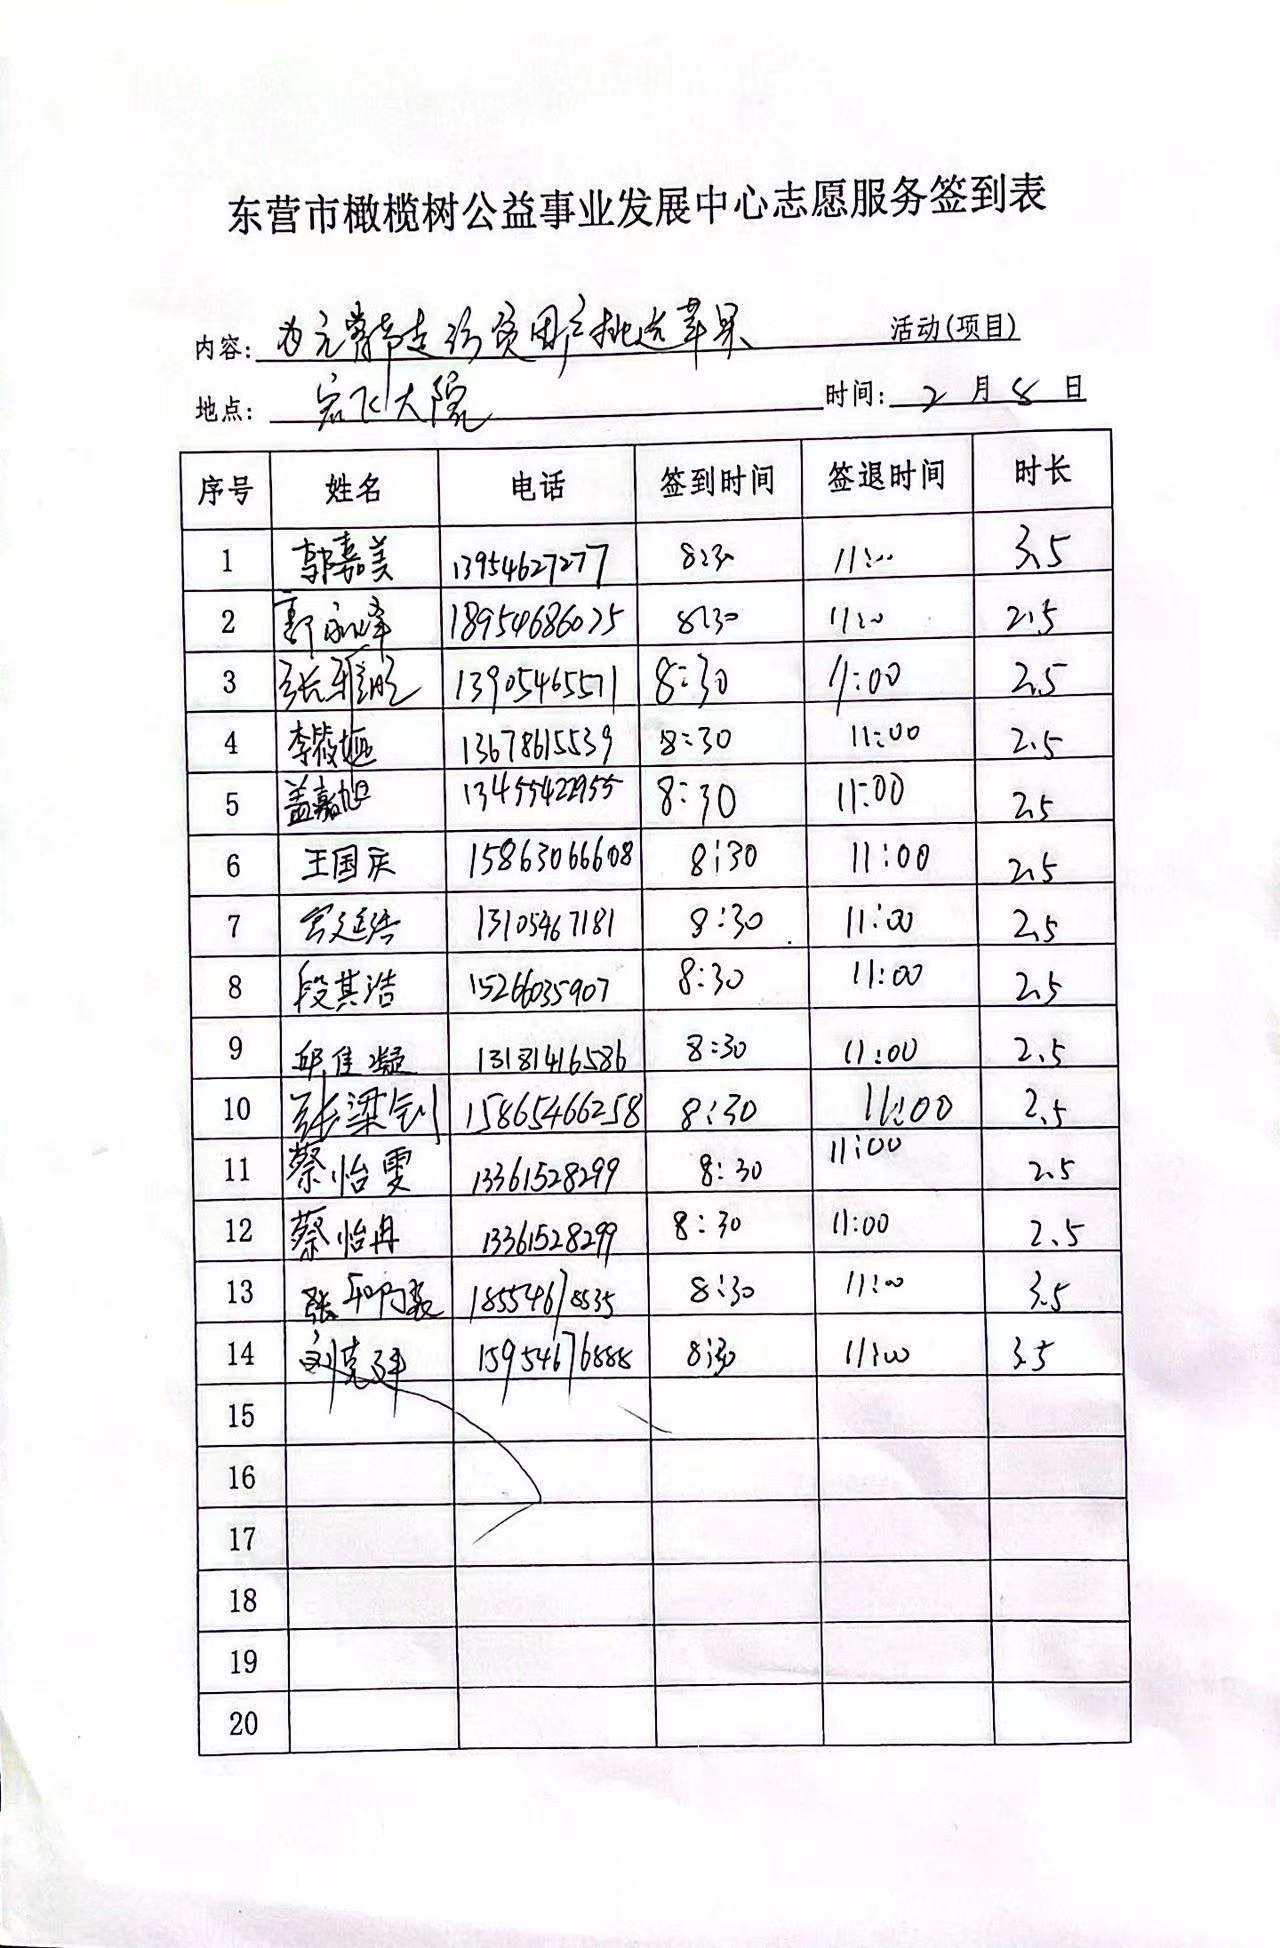 东营市橄榄树公益事业发展中心志愿服务签到表
内容: 为元宵节走访贫困户挑选苹果 活动(项目)
地点: 宏飞大院 时间: 2 月 8 日
序号 姓名 电话 签到时间 签退时间 时长
1 郭嘉美 13954627277 8:30 11:00 3.5
2 郭永峰 18954686025 8:30 11:00 2.5
3 张雅 13905465571 8:30 11:00 2.5
4 李筱 13678615539 8:30 11:00 2.5
5 盖嘉旭 13455422955 8:30 11:00 2.5
6 王国庆 15863066608 8:30 11:00 2.5
7 宫延浩 13105467181 8:30 11:00 2.5
8 段其浩 15266035907 8:30 11:00 2.5
9 邱佳凝 13181416586 8:30 11:00 2.5
10 张梁钊 15865466258 8:30 11:00 2.5
11 蔡怡雯 13361528299 8:30 11:00 2.5
12 蔡怡冉 13361528299 8:30 11:00 2.5
13 张 18554678835 8:30 11:00 3.5
14 刘克 15954676888 8:30 11:00 3.5
15
16
17
18
19
20